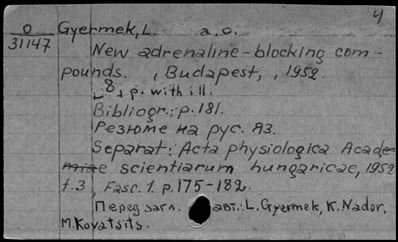 4
O Gyermek, L. a. o.
31147
New adrenaline-blocking com-
pounds. , Budapest, , 1952.
[8] p. with ill.
Bibliogr.: p. 181.
Резюме на рус. Аз.
Separat: Acta physiologica Acade-
miae scientiarum hungaricae, 1952
t.3, Fasc. 1. p. 175-182.
Перед загл. авт.: L. Gyermek, K. Nador,
M. Kovatsits.